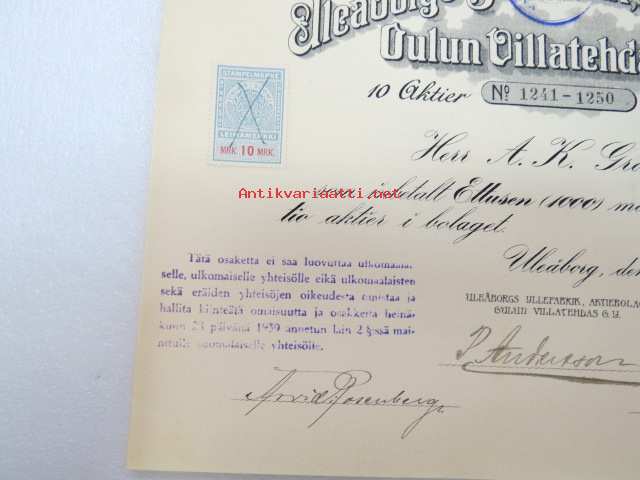 Uleåborgs
Oulun Villatehdas
10 Aktier Nº 1241-1250
STÄMPELMÄRKE
LEIMAMERKKI
MRK. 10 MRK.
Herr A. K.
Antikvariaatti.net
inbetalt Ettusen (1000) m
tio aktier i bolaget.
Uleåborg, den
Tätä osaketta ei saa luovuttaa ulkomaala-
selle, ulkomaiselle yhteisölle eikä ulkomaalaisten
sekä eräiden yhteisöjen oikeudesta omistaa ja
hallita kiinteätä omaisuutta ja osakkeita heinä-
kuun 28 päivänä 1939 annetun lain 2 §:ssä mai-
nitulle suomalaiselle yhteisölle.
ULEÅBORGS YLLEFABRIK, AKTIEBOLAG
OULUN VILLATEHDAS O.Y.
P. Andersson
Arvid Rosenberg